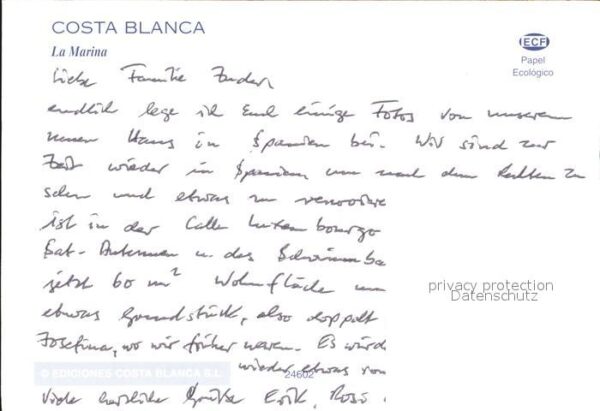 COSTA BLANCA
La Marina
ECF
Papel
Ecológico
Liebe Familie Zander,
endlich lege ich Euch einige Fotos von unserem
neuen Haus in Spanien bei. Wir sind zur
Zeit wieder in Spanien um nach dem Rechten zu
sehen und etwas zu
ist in der Calle
Sat-Antennen u. das
jetzt 60 m² Wohnfläche
etwas Grundstück, also doppelt
Josefina, wo wir früher waren. Es
wieder etwas von
Viele herzliche Grüße Erik, Rosi
privacy protection
Datenschutz
© EDICIONES COSTA BLANCA S.L.
24602